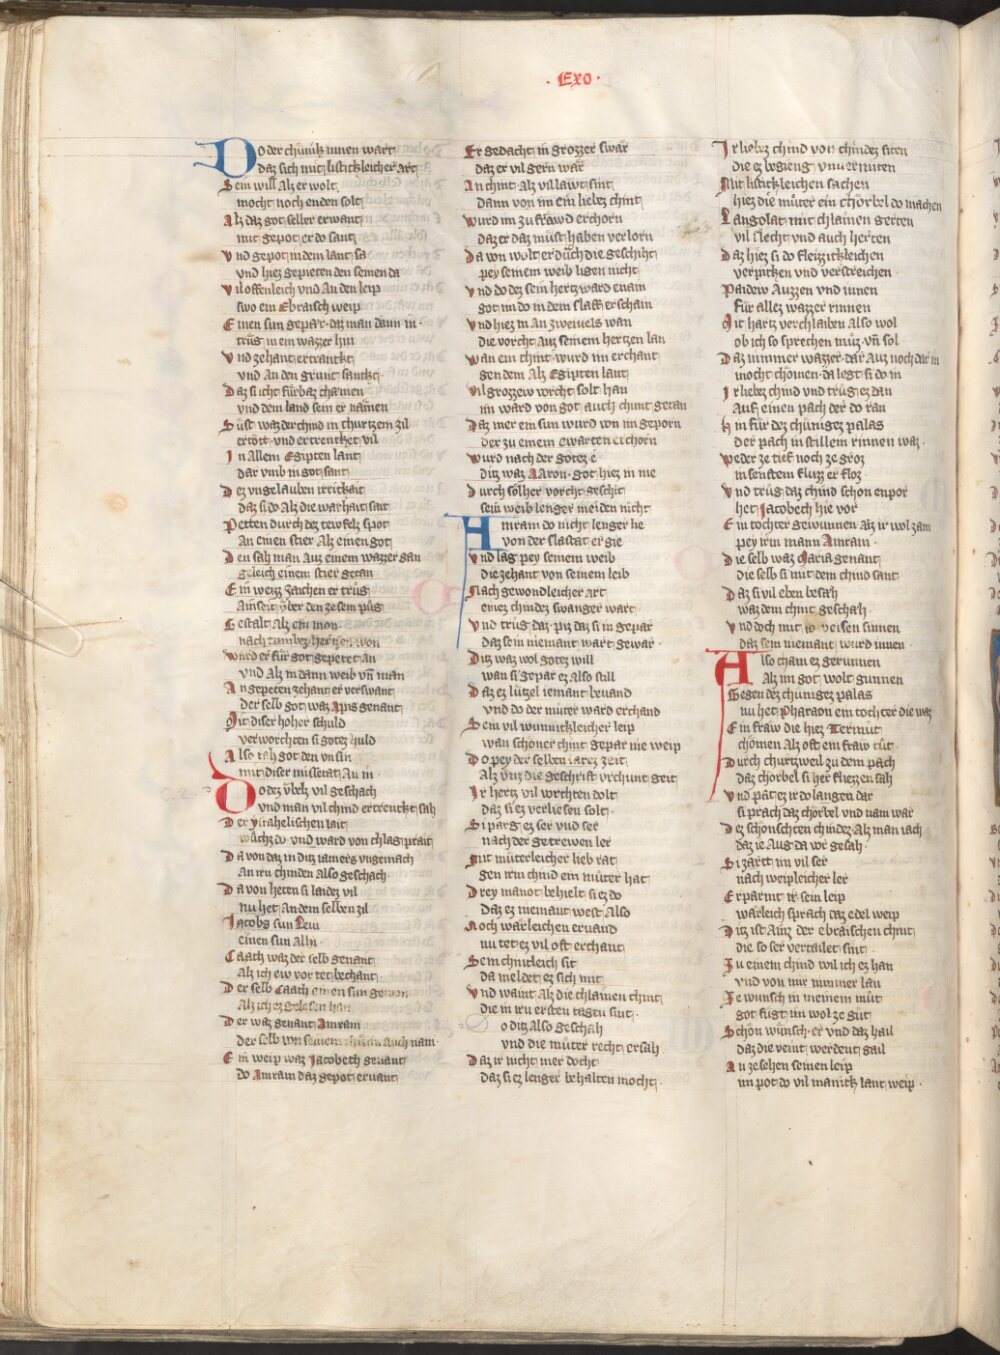 · Exo ·
Do der chünik innen wart
daz sich mit listickleicher art
Sein will alz er wolt
mocht noch enden solt
Alz daz got seller erwant
mit gepot er do sant
Vnd gepot in dem lant sa
vnd hiez gepieten den seinen da
Vil offenleich vnd an den leip
swo ein Ebraisch weip
Einen sun gepär daz man dann in
trüg in ein wazzer hin
Vnd zehant ertranckt
vnd an den grunt sanckt
Daz si icht fürbaz chämen
vnd dem land sein er nämen
Süst waz der chind in churtzem zil
ertött vnd ertrencket vil
In allem Egipten lant
dar vmb in got sant
Dez vngelauben irrickait
daz si do alz die warhait sait
Petten durch dez tewfelz spot
an einen stier alz einen got
Den sah man auz einem wazzer gan
geleich einem stier getan
Ein weizz zaichen er trüg
ainseit vber den zesem püg
Gestalt alz ein mon
nach tumber hertzen won
Ward er für got gepetet an
vnd alz in dann weib vn̄ man
An gepeten zehant er verswant
der selb got waz Apis genant
Mit diser hoher schuld
verworchten si gotez huld
Also rah got den vn sin
mit diser missetat an in
Do dez vbelz vil geschach
vnd man vil chind ertrenckt sah
Der ysrahelischen lait
wüchz do vnd ward von chlag prait
Da von daz in ditz iamers vngemach
an irn chinden also geschach
Da von heten si laidez vil
nu het an dem selben zil
Jacobs sun Leui
einen sun alhi
Caath waz der selb genant
alz ich ew vor tet bechant
Der selb Caath einen sun gewan
alz ich ez gelesen han
Der waz genant Amram
der selb von seinem chünn auch nam
Ein weip waz Jacobeth genant
do Amram daz gepot eruant
Er gedacht in grozzer swär
daz er vil gern wär
An chint alz vil läwt sint
dann von im ein liebez chint
Wurd im zu frawd erchorn
daz er daz müst haben verlorn
Da von wolt er düch die geschiht
pey seinem weib ligen nicht
Vnd do dez sein hertz ward enain
got im do in dem slaff erschain
Vnd hiez in an zweiuels wan
die vorcht auz seinem hertzen lan
Wan ein chint wurd im erchant
gen dem alz Egipten lant
Vil grozzew vorcht solt han
im ward von got auch chunt getan
Daz mer ein sun wurd von im geporn
der zu einem ewarten erchorn
Wurd nach der gotez e
ditz waz Aaron got hiez in nie
Durch solher vorcht geschit
sein weib lenger meiden nicht
Amram do nicht lenger lie
von der slastat er gie
Vnd lag pey seinem weib
die zehant von seinem leib
Nach gewondleicher art
einez chindez swanger wart
Vnd trüg daz piz daz si in gepar
daz sein niemant wart gewar
Ditz waz wol gotez will
wan si gepar ez also still
Daz ez lützel iemant beuand
vnd do der müter ward erchand
Sein vil wunnickleicher leip
wan schöner chint gepar nie weip
Do pey der selben iarez zeit
alz vnz die geschrift vrchunt geit
Ir hertz vil vorchten dolt
daz si ez verliesen solt
Si parg ez ser vnd ser
nach der getrewen ler
Mit müterleicher lieb rat
gen irm chind ein müter hat
Drey manot behielt si ez do
daz ez niemant west also
Noch wärleichen eruand
nu tet ez vil oft erchant
Sein chintleich sit
da meldet ez sich mit
Vnd waint alz die chlainen chint
die in irn ersten tagen sint
o ditz also geschah
vnd die müter recht ersah
Daz ir nicht mer docht
daz si ez lenger behalten mocht
Ir liebez chind von chindez siten
die ez begieng vnuermiten
Mit listickleichen sachen
hiez die müter ein chörbel do machen
Langolat mit chlainen gerten
vil slecht vnd auch herten
Daz hiez si do fleizzickleichen
verpichen vnd verstreichen
Paidew auzzen vnd innen
für allez wazzer rinnen
Mit hartz verchlaiben also wol
ob ich so sprechen müz vn̄ sol
Daz nimmer wazzer dar auz noch dar in
mocht chömen da legt si do in
Ir liebez chind vnd trüg ez dan
auf einen pach der do ran
Hin für dez chünigez palas
der pach in stillem rinnen waz
Weder ze tief noch ze groz
in senftem fluzz er floz
Vnd trüg daz chind schon enpor
het Jacobech hie vor
Ein tochter gewunnen alz ir wol zam
pey irm mann Amram
Die selb waz Maria genant
die selb si mit dem chind sant
Daz si vil eben besäh
waz dem chint geschäh
Vnd doch mit so weisen sinnen
daz sein niemant wurd innen
Also cham ez gerunnen
alz im got wolt gunnen
Gegen dez chünigez palas
nu het Pharaon ein tochter die waz
Ein fraw die hiez Termut
chömen alz oft ein fraw tüt
Durch churtzweil zu dem pach
daz chörbel si her fliezzen sah
Vnd pat ez ir do langen dar
si prach daz chörbel vnd nam war
Dez schönschten chindez alz man iach
daz ie aug da vor gesah
Si zärtt im vil ser
nach weipleicher ler
Erparmt ir sein leip
wärleich sprach daz edel weip
Ditz ist ainz der ebraischen chint
die so ser vertailet sint
Zu einem chind wil ich ez han
vnd von mir nimmer lan
Ze wunsch in meinem müt
got fügt im wol ze güt
Schön wünsch er vnd daz hail
daz die veint werdent gail
An ze sehen seinen leip
im pot do vil manick lant weip